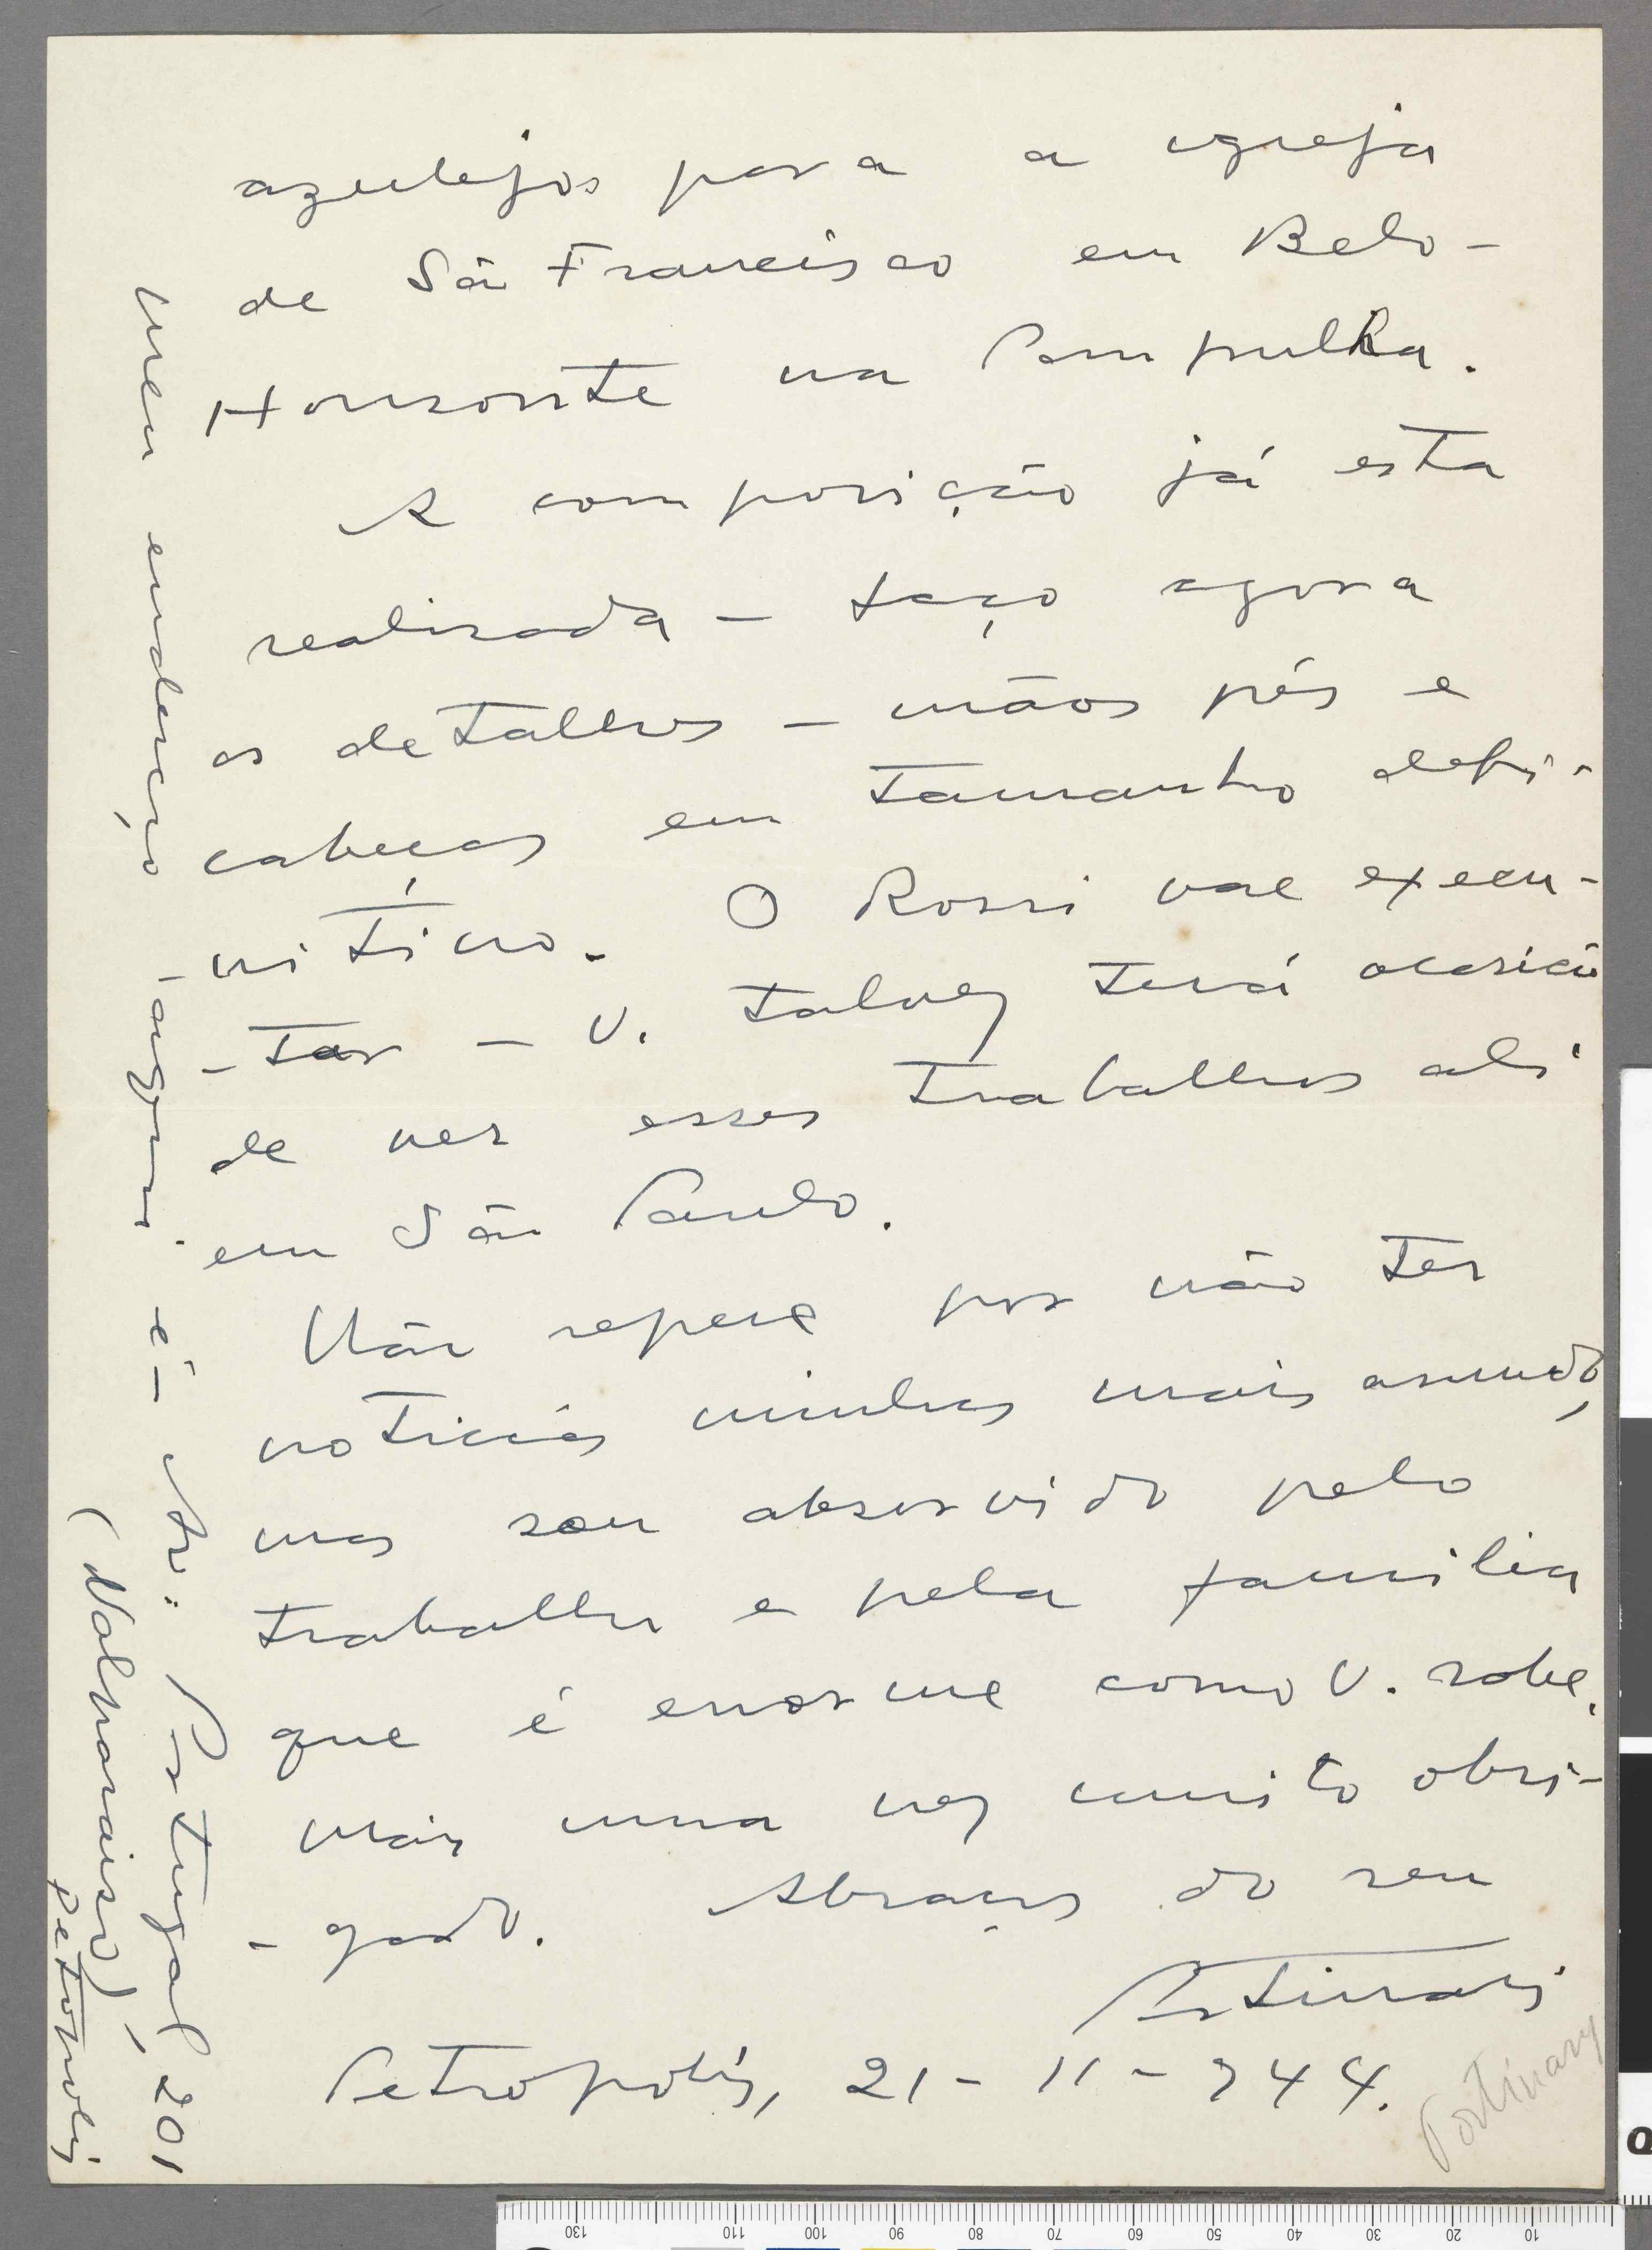 azulejos para a igreja
de Sã Francisco em Belo-
Horisonte na Pampulha.
A composição já esta
realisada - faço agora
os detalhes - mãos pés e
cabeças em tamanho defi-
nitivo. O Rossi vae execu-
-tar - V. talvez terá ocasião
de ver esses trabalhos ali
em São Paulo.
Não repare por não ter
noticias minhas mais amiudo,
mas sou absorvido pelo
trabalho e pela familia
que é enorme como V. sabe.
Mais uma vez muito obri-
-gado. Abraços do seu
Portinari
Petropolis, 21-11-944.
Portinary
Meu endereço - aqui é - Av: Portugal, 201
(Valparaiso) -
Petropolis
130 110 100 90 80 70 60 50 40 30 20 10